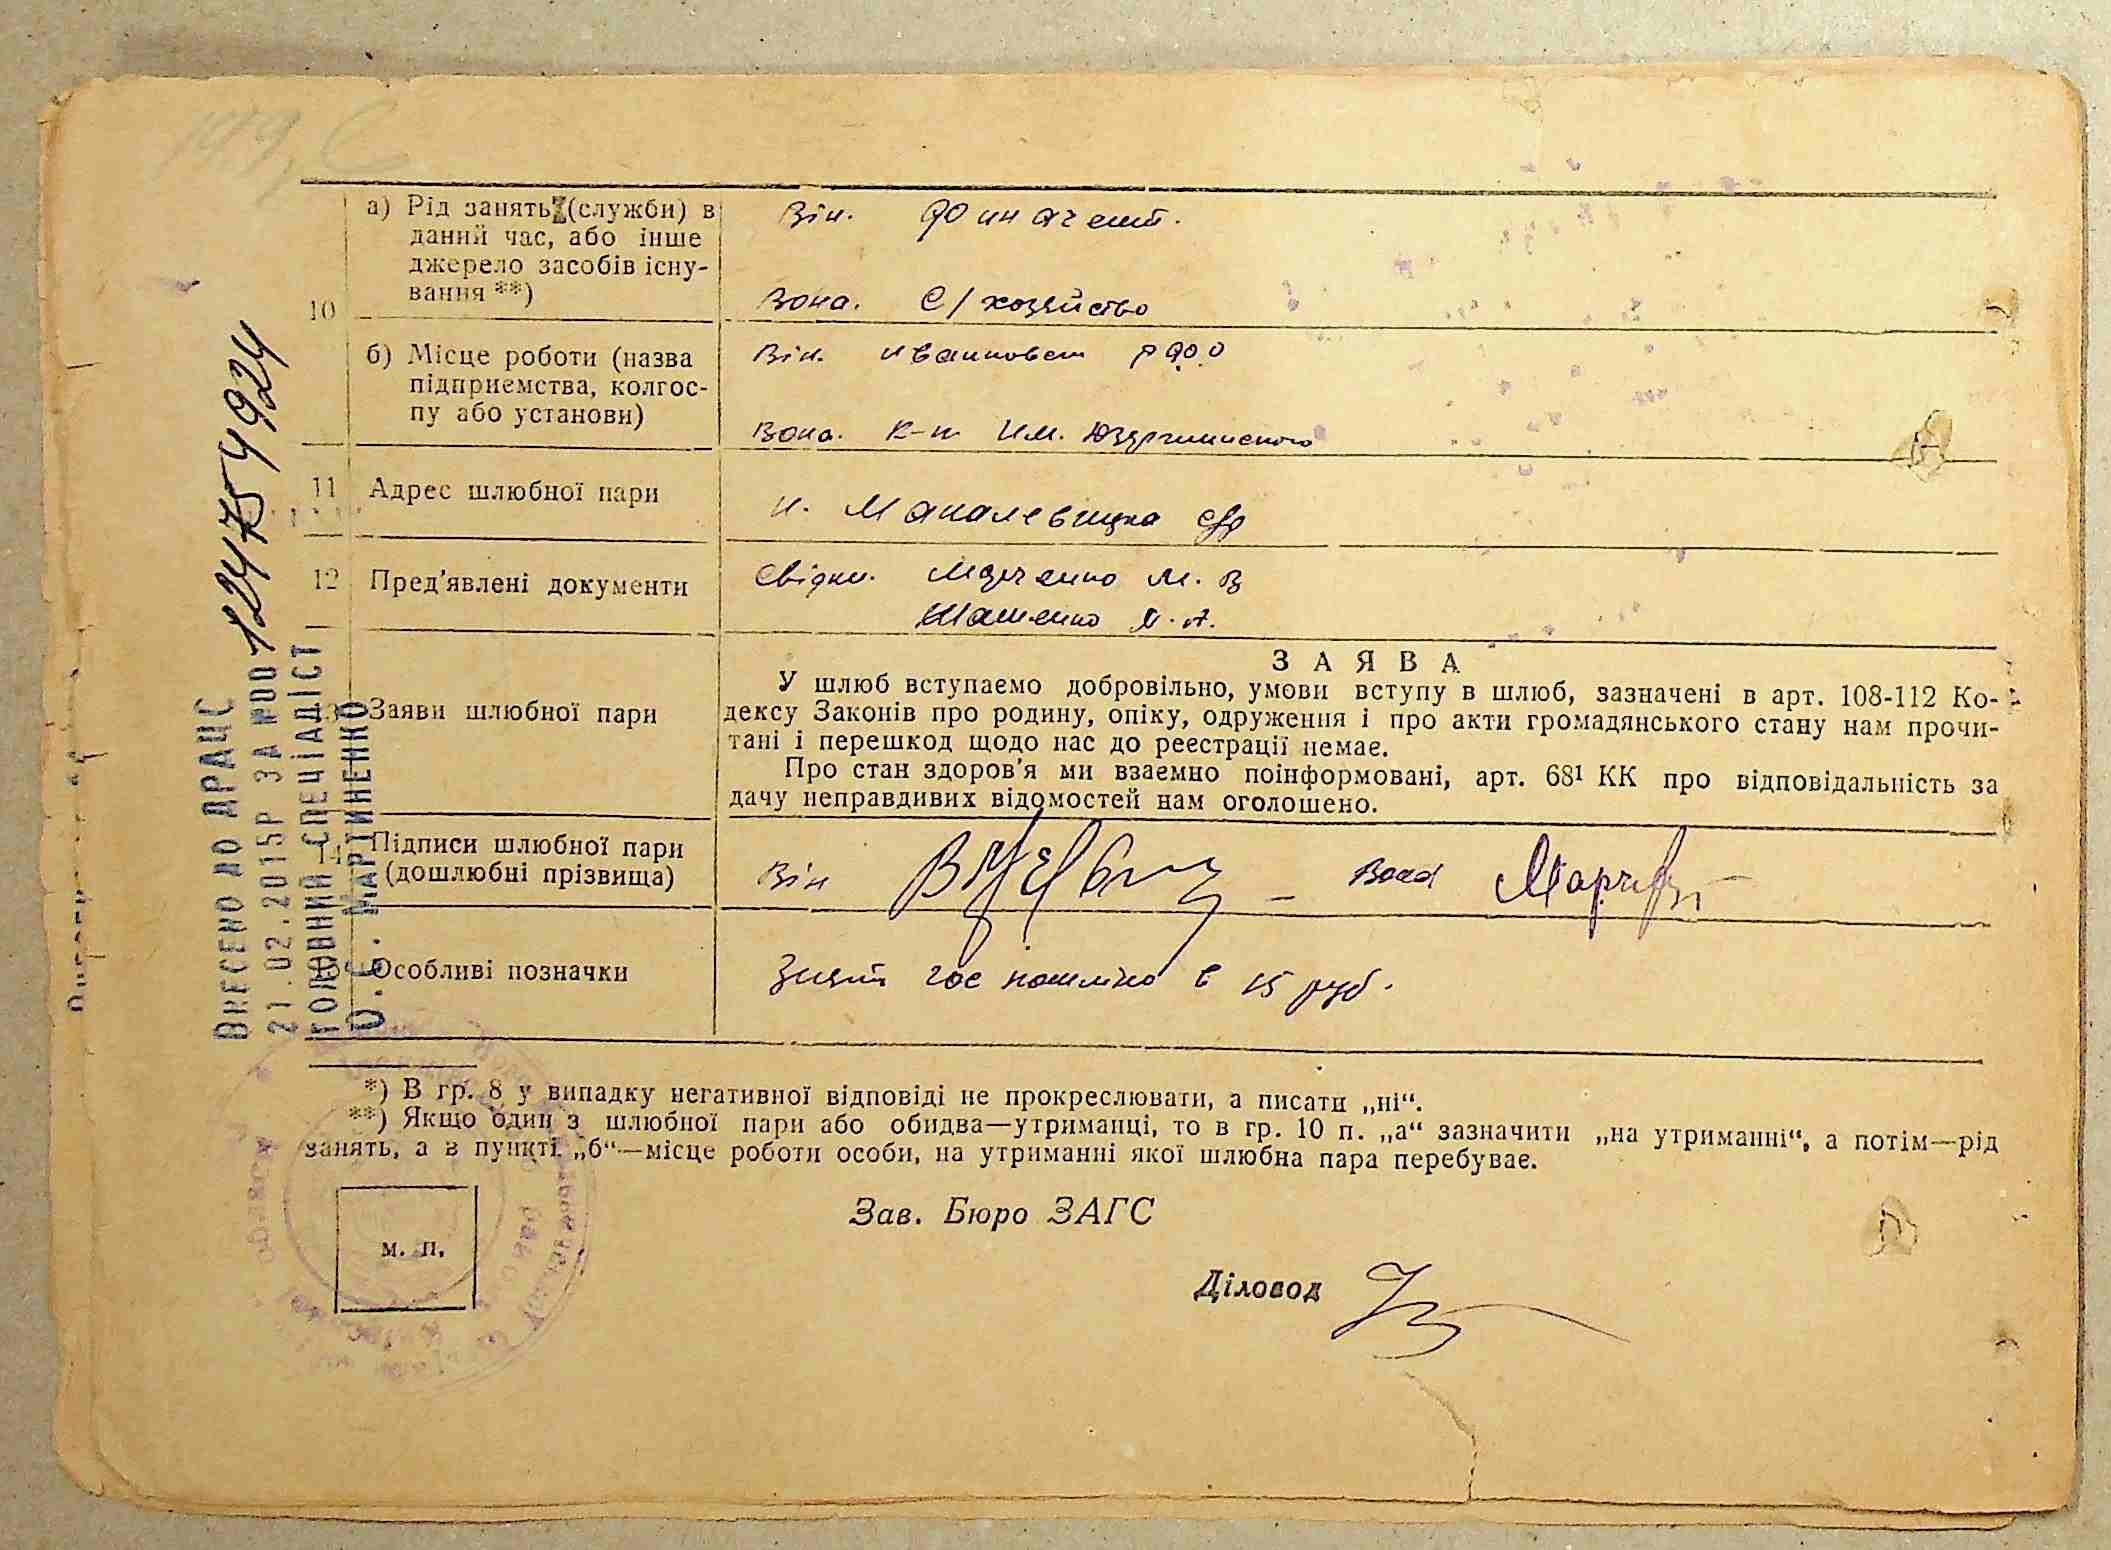 а) Рід занять (служби) в
даний час, або інше
джерело засобів існу-
вання **)
Він. фин агент.
Вона. С/хозяйство
10
б) Місце роботи (назва
підприємства, колгос-
пу або установи)
Він.
Вона. К-п им.
11
Адрес шлюбної пари
12
Пред'явлені документи
Свідки. М. В
13
Заяви шлюбної пари
ЗАЯВА
У шлюб вступаємо добровільно, умови вступу в шлюб, зазначені в арт. 108-112 Ко-
дексу Законів про родину, опіку, одруження і про акти громадянського стану нам прочи-
тані і перешкод щодо нас до реєстрації немає.
Про стан здоров'я ми взаємно поінформовані, арт. 68¹ КК про відповідальність за
дачу неправдивих відомостей нам оголошено.
14
Підписи шлюбної пари
(дошлюбні прізвища)
Він
Вона
Особливі позначки
гос в 15 руб.
*) В гр. 8 у випадку негативної відповіді не прокреслювати, а писати „ні“.
**) Якщо один з шлюбної пари або обидва—утриманці, то в гр. 10 п. „а“ зазначити „на утриманні“, а потім—рід
занять, а в пункті „б“—місце роботи особи, на утриманні якої шлюбна пара перебуває.
Зав. Бюро ЗАГС
м. п.
Діловод
ВНЕСЕНО ДО ДРАЦС
21.02.2015Р ЗА №00 124754924
ГОЛОВНИЙ СПЕЦІАЛІСТ
О.Є. МАРТИНЕНКО